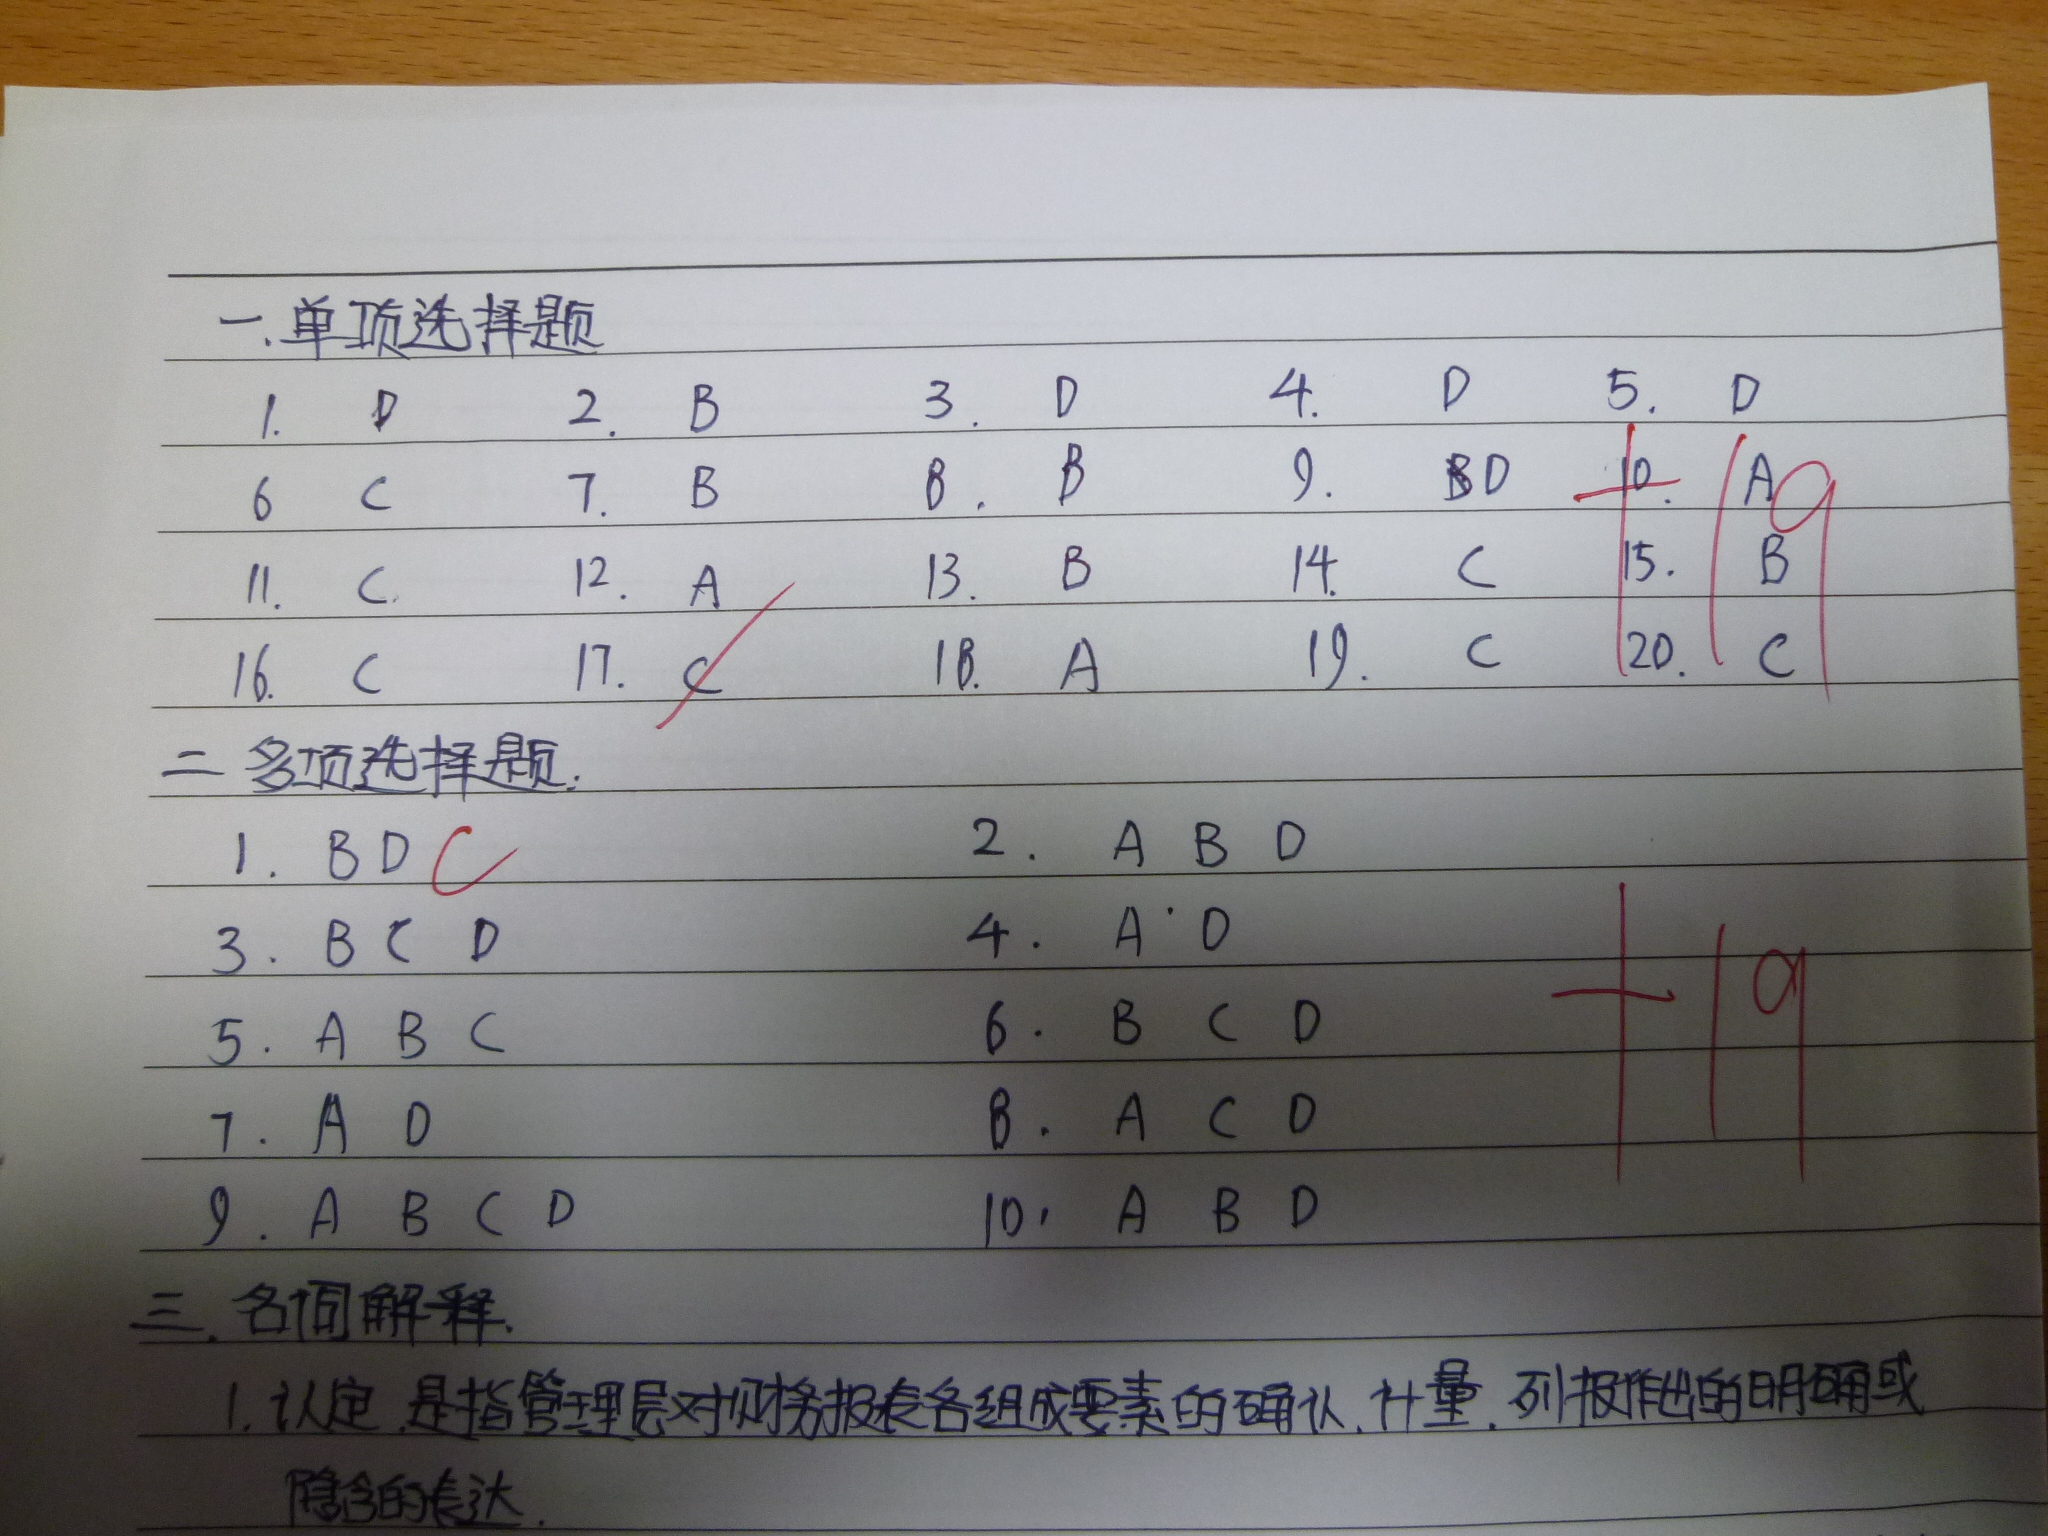 一.单项选择题
1. D 2. B 3. D 4. D 5. D
6 C 7. B 8. B 9. D 10. A
+19
11. C 12. A 13. B 14. C 15. B
16. C 17. C 18. A 19. C 20. C
二 多项选择题.
1. B D C 2. A B D
3. B C D 4. A D
+19
5. A B C 6. B C D
7. A D 8. A C D
9. A B C D 10. A B D
三.名词解释.
1.认定.是指管理层对财务报表各组成要素的确认.计量.列报作出的明确或
隐含的表达.